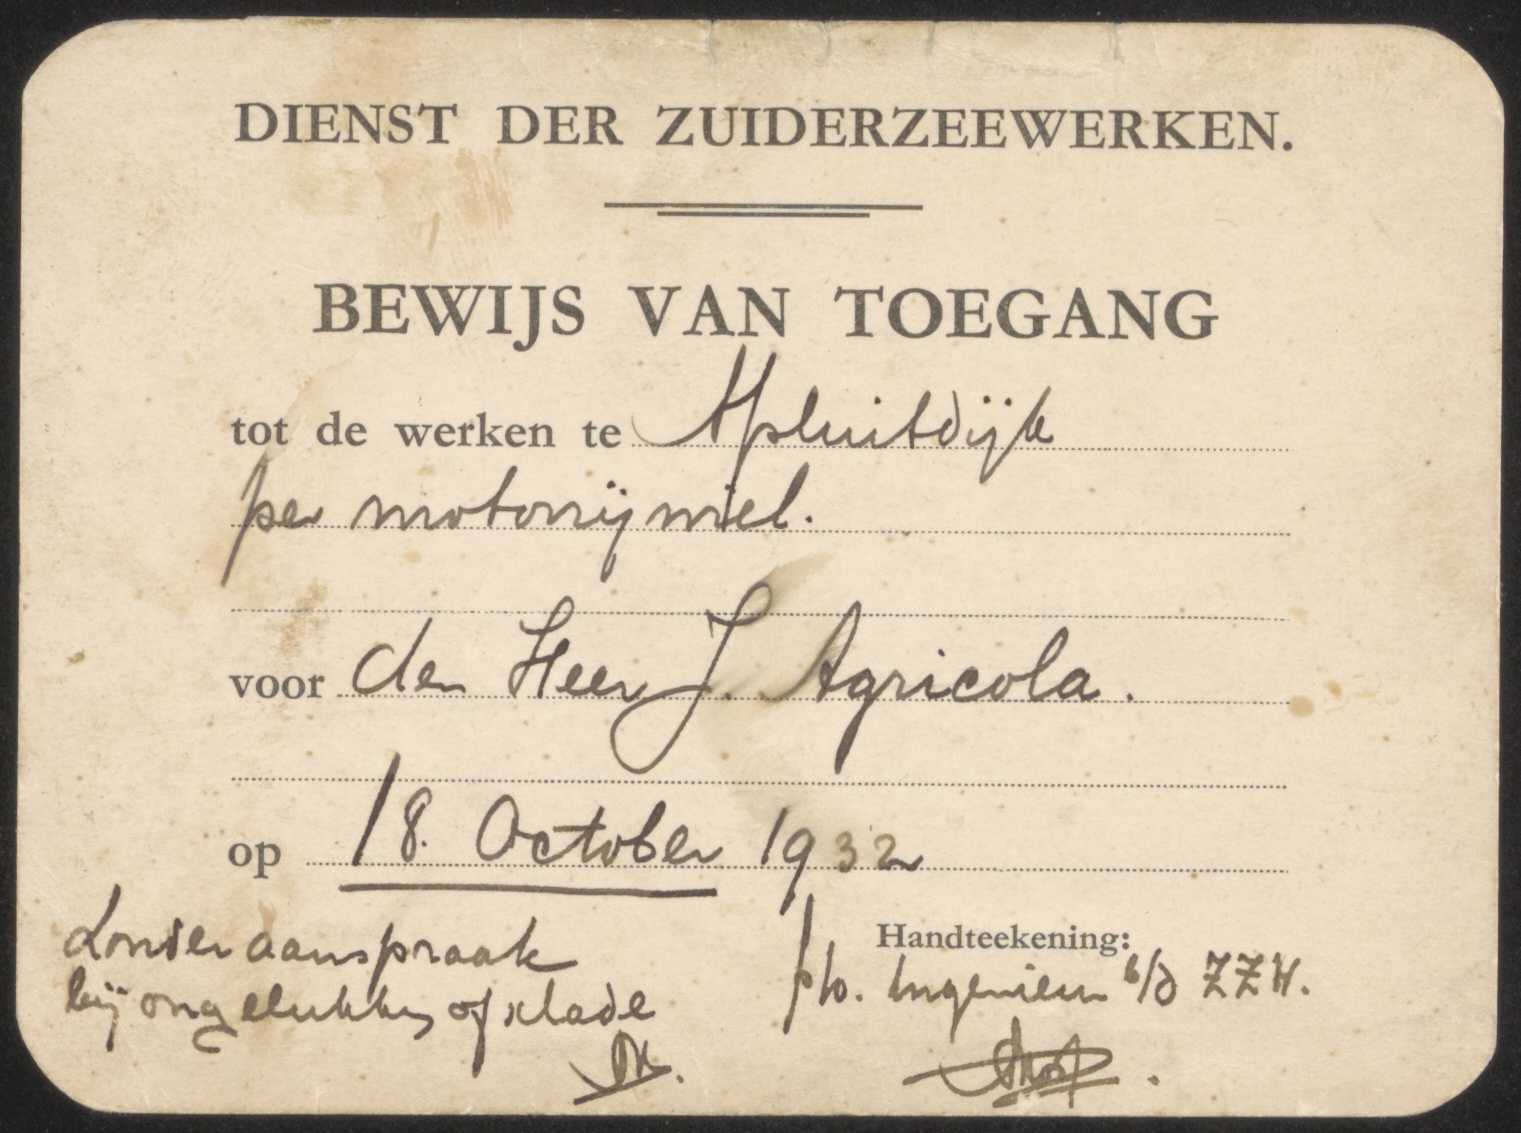 DIENST DER ZUIDERZEEWERKEN.
BEWIJS VAN TOEGANG
tot de werken te Afsluitdijk
per motorrijwiel.
voor den Heer J. Agricola.
op 18. October 1932
Zonder aanspraak
bij ongelukken of schade
Handteekening:
p/o. Ingenieur b/d ZZW.